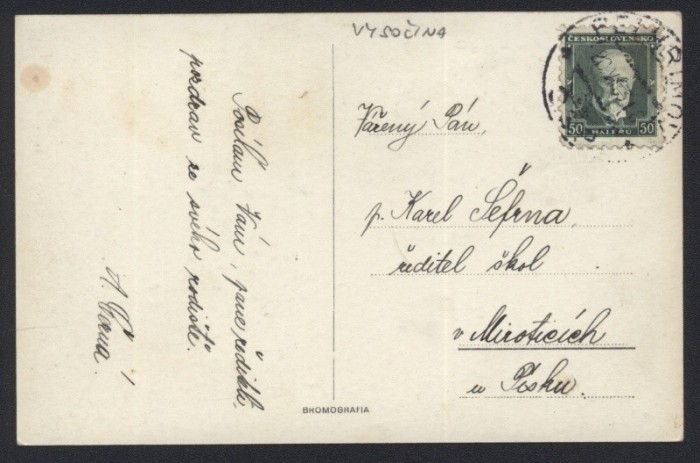 VYSOČINA
Posílám Vám, pane řediteli,
pozdrav ze svého rodiště.
A. Černá.
ČESKOSLOVENSKO
50 HALÉŘŮ 50
Vážený Pán,
p. Karel Šefrna
ředitel škol
v Miroticích
u Písku.
BROMOGRAFIA